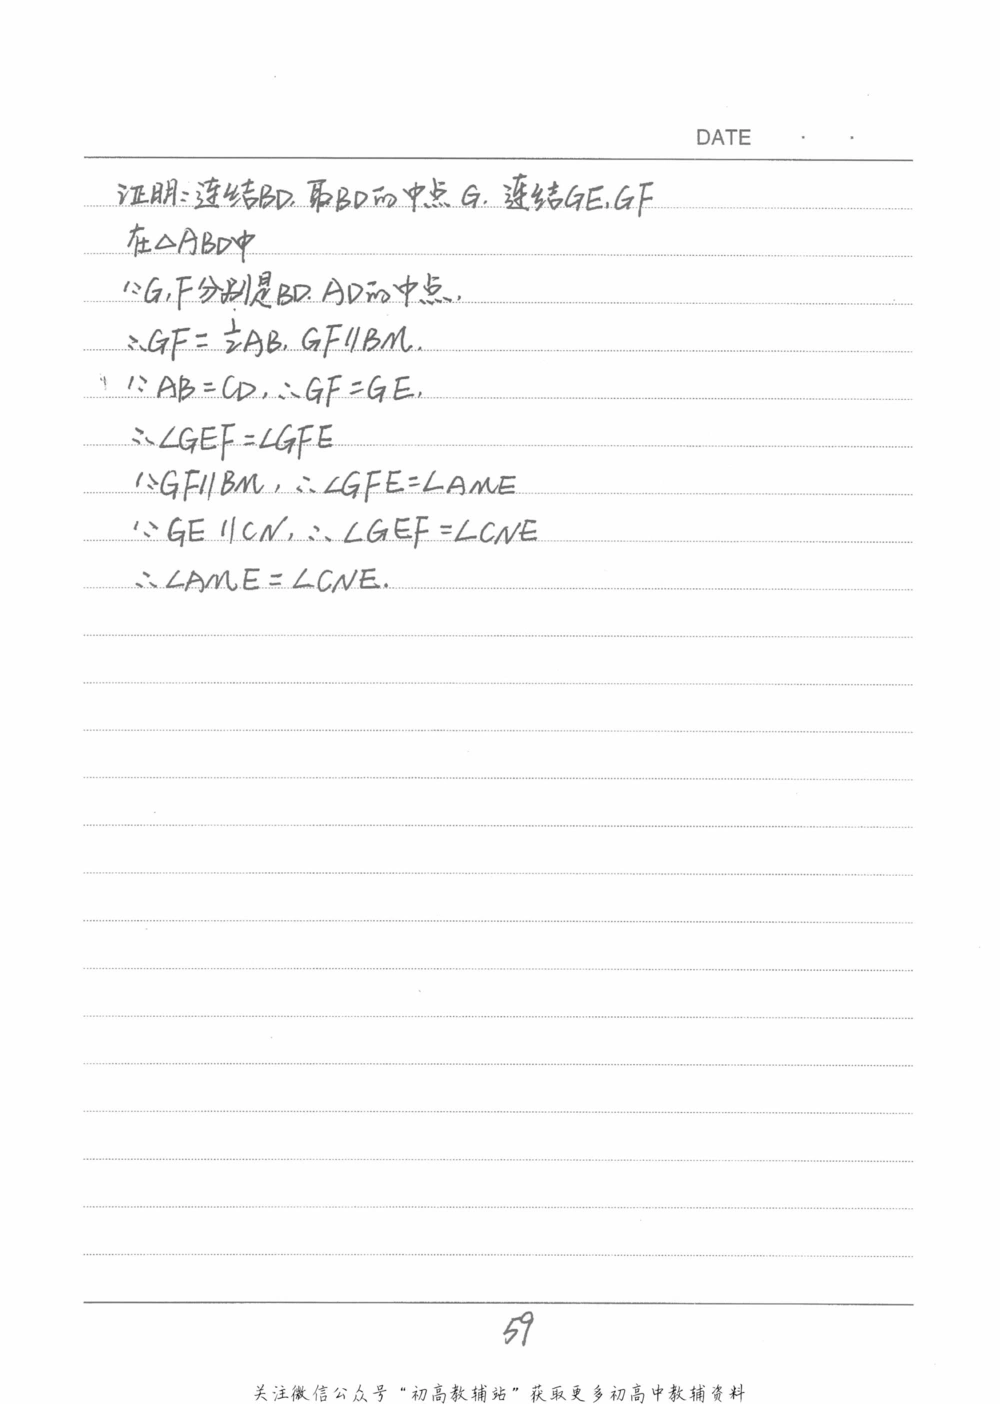 DATE · ·
证明:连结BD.取BD的中点G.连结GE,GF
在△ABD中
∵G,F分别是BD.AD的中点,
∴GF=½AB,GF∥BM.
∵AB=CD,∴GF=GE,
∴∠GEF=∠GFE
∵GF∥BM,∴∠GFE=∠AME
∵GE∥CN,∴∠GEF=∠CNE
∴∠AME=∠CNE.
59
关注微信公众号“初高教辅站”获取更多初高中教辅资料